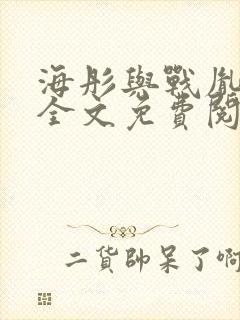 海彤與戰胤
全文免費閱
二貨帥呆了啊